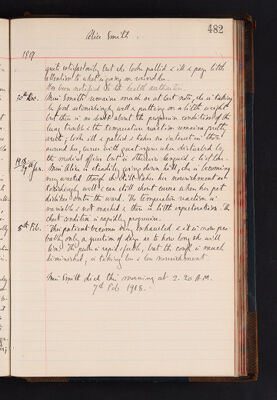 482
Alice Smith.
1907
quite satisfactorily, but she looks pallid & ill & pays little
attention to what is going on around her.
Has been notified to the health authorities.
30th Dec. Miss Smith remains much as at last note, she is taking
her food astonishingly well & putting on a little weight
but there is no doubt about the progressive condition of the
lung trouble; the temperature reaction remains pretty
much; looks ill & pallid & takes no interest in
around her, swears with great vigour when disturbed by
the medical officer but is otherwise languid & listless.
Jan. Miss Alice is steadily going down hill, she is becoming
very wasted though she still takes her nourishment
astonishingly well & can still shout curses when her pet
dislikes enter the ward. The temperature reaction is
variable & not marked & there is little expectoration. The
chest condition is rapidly progressive.
5th Feb. This patient becomes very exhausted & it is now
only a question of days as to how long she will
live. The pulse is rapid & feeble, but the cough is much
diminished; is taking less & less nourishment.
Miss Smith died this morning at 2.20 A.M.
7th Feb. 1908.